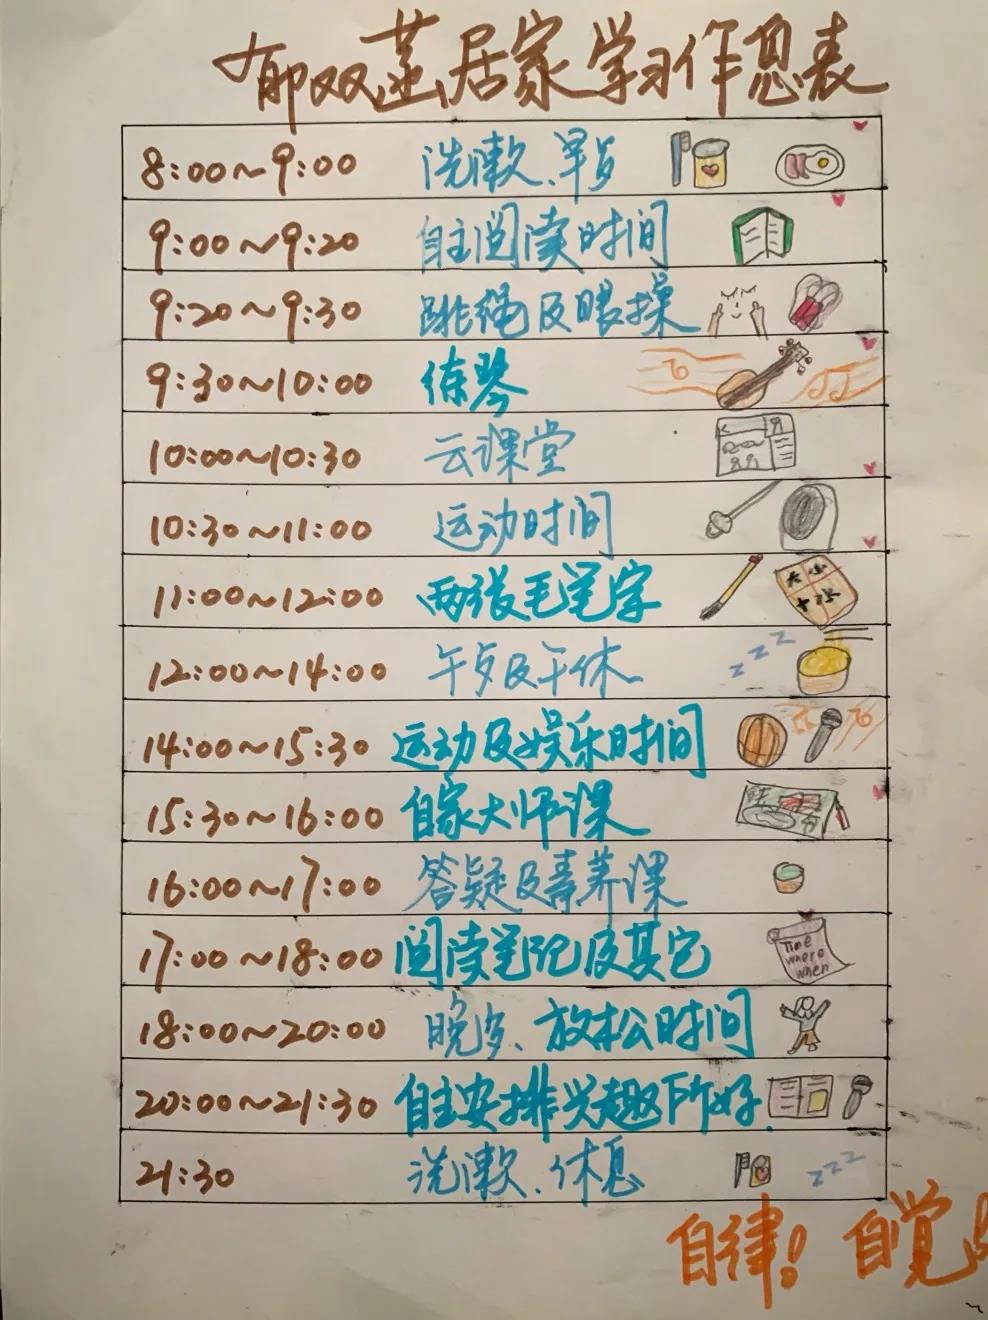 郁双蕋居家学习作息表
8:00~9:00 洗漱、早点
9:00~9:20 自主阅读时间
9:20~9:30 跳绳及眼操
9:30~10:00 练琴
10:00~10:30 云课堂
10:30~11:00 运动时间
11:00~12:00 两张毛笔字
12:00~14:00 午歺及午休
zzz
14:00~15:30 运动及娱乐时间
15:30~16:00 自家大师课
16:00~17:00 答疑及素养课
17:00~18:00 阅读笔记及其它
Time
where
when
18:00~20:00 晚歺、放松时间
20:00~21:30 自主安排兴趣所好
21:30 洗漱、休息
zzz
自律！自觉！